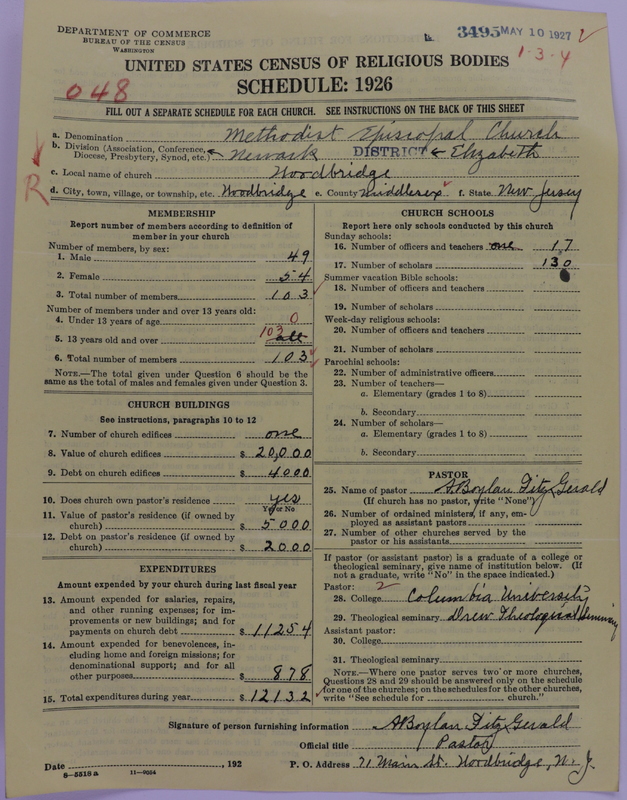 DEPARTMENT OF COMMERCE
BUREAU OF THE CENSUS
WASHINGTON
3495 MAY 10 1927
1-3-4
UNITED STATES CENSUS OF RELIGIOUS BODIES
SCHEDULE: 1926
048
FILL OUT A SEPARATE SCHEDULE FOR EACH CHURCH. SEE INSTRUCTIONS ON THE BACK OF THIS SHEET
a. Denomination Methodist Episcopal Church
b. Division (Association, Conference, Diocese, Presbytery, Synod, etc.) Newark DISTRICT Elizabeth
c. Local name of church Woodbridge
R
d. City, town, village, or township, etc. Woodbridge e. County Middlesex f. State New Jersey
MEMBERSHIP
Report number of members according to definition of
member in your church
Number of members, by sex:
1. Male 49
2. Female 54
3. Total number of members 103
Number of members under and over 13 years old:
4. Under 13 years of age 0
5. 13 years old and over 103 all
6. Total number of members 103
NOTE.—The total given under Question 6 should be the
same as the total of males and females given under Question 3.
CHURCH BUILDINGS
See instructions, paragraphs 10 to 12
7. Number of church edifices one
8. Value of church edifices $ 20,000
9. Debt on church edifices $ 4000
10. Does church own pastor's residence yes
Yes or No
11. Value of pastor's residence (if owned by
church) $ 5000
12. Debt on pastor's residence (if owned by
church) $ 2000
EXPENDITURES
Amount expended by your church during last fiscal year
13. Amount expended for salaries, repairs,
and other running expenses; for im-
provements or new buildings; and for
payments on church debt $ 11254
14. Amount expended for benevolences, in-
cluding home and foreign missions; for
denominational support; and for all
other purposes $ 878
15. Total expenditures during year $ 12132
CHURCH SCHOOLS
Report here only schools conducted by this church
Sunday schools:
16. Number of officers and teachers one 17
17. Number of scholars 130
Summer vacation Bible schools:
18. Number of officers and teachers
19. Number of scholars
Week-day religious schools:
20. Number of officers and teachers
21. Number of scholars
Parochial schools:
22. Number of administrative officers
23. Number of teachers—
a. Elementary (grades 1 to 8)
b. Secondary
24. Number of scholars—
a. Elementary (grades 1 to 8)
b. Secondary
PASTOR
25. Name of pastor A Boylan Fitz Gerald
(If church has no pastor, write "None")
26. Number of ordained ministers, if any, em-
ployed as assistant pastors
27. Number of other churches served by the
pastor or his assistants
If pastor (or assistant pastor) is a graduate of a college or
theological seminary, give name of institution below. (If
not a graduate, write "No" in the space indicated.)
Pastor: 2
28. College Columbia University
29. Theological seminary Drew Theological Seminary
Assistant pastor:
30. College
31. Theological seminary
NOTE.—Where one pastor serves two or more churches,
Questions 28 and 29 should be answered only on the schedule
for one of the churches; on the schedules for the other churches,
write "See schedule for church."
Signature of person furnishing information A Boylan Fitz Gerald
Official title Pastor
Date , 192 P. O. Address 71 Main St. Woodbridge, N. J.
8-5518a 11-9054